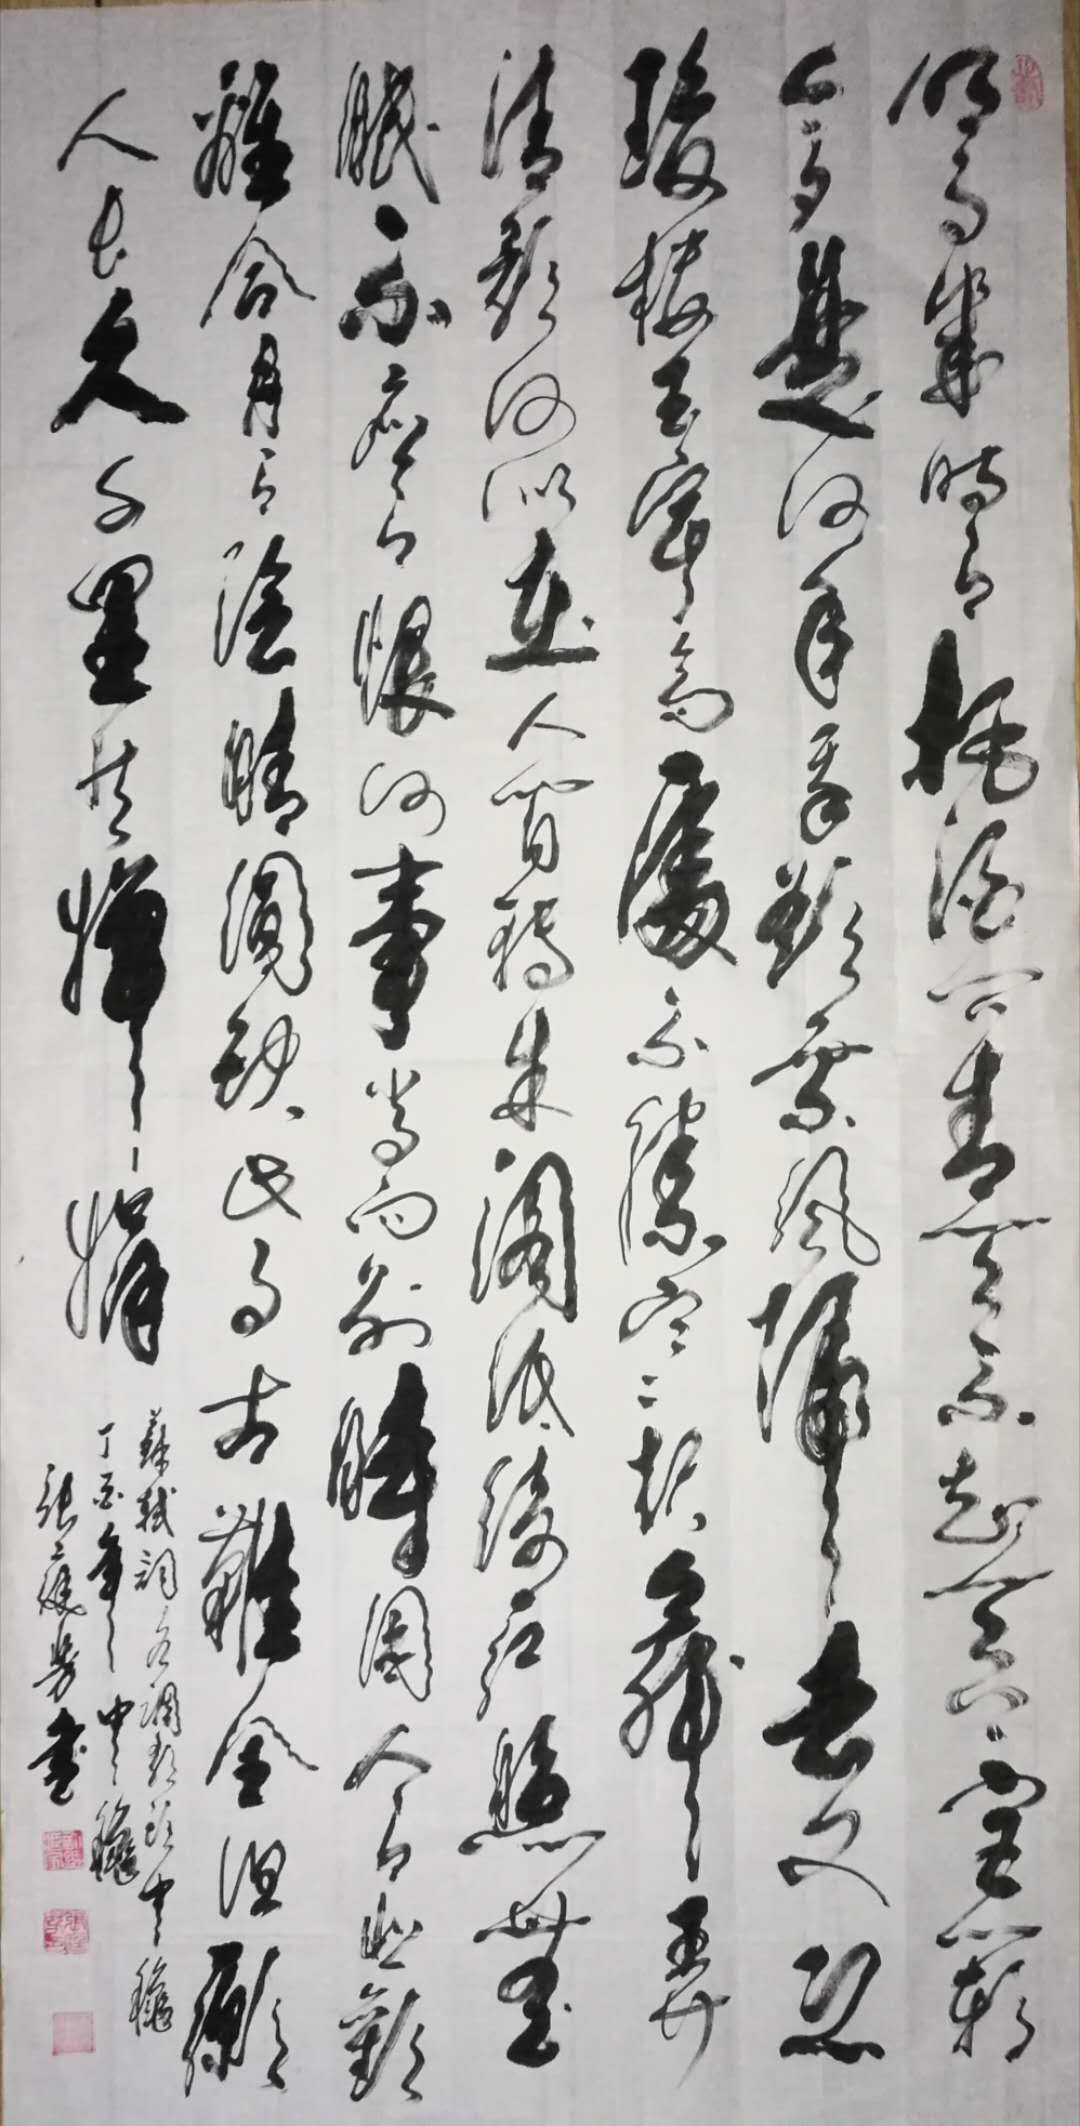 明月幾時有把酒問青天不知天上宮闕
今夕是何年我欲乘風歸去又恐
瓊樓玉宇高處不勝寒起舞弄
清影何似在人間轉朱閣低綺户照無
眠不應有恨何事長向別時圓人有悲歡
離合月有陰晴圓缺此事古難全但願
人長久千里共嬋娟
蘇軾詞水調歌頭中秋
丁酉年中秋
張芳書